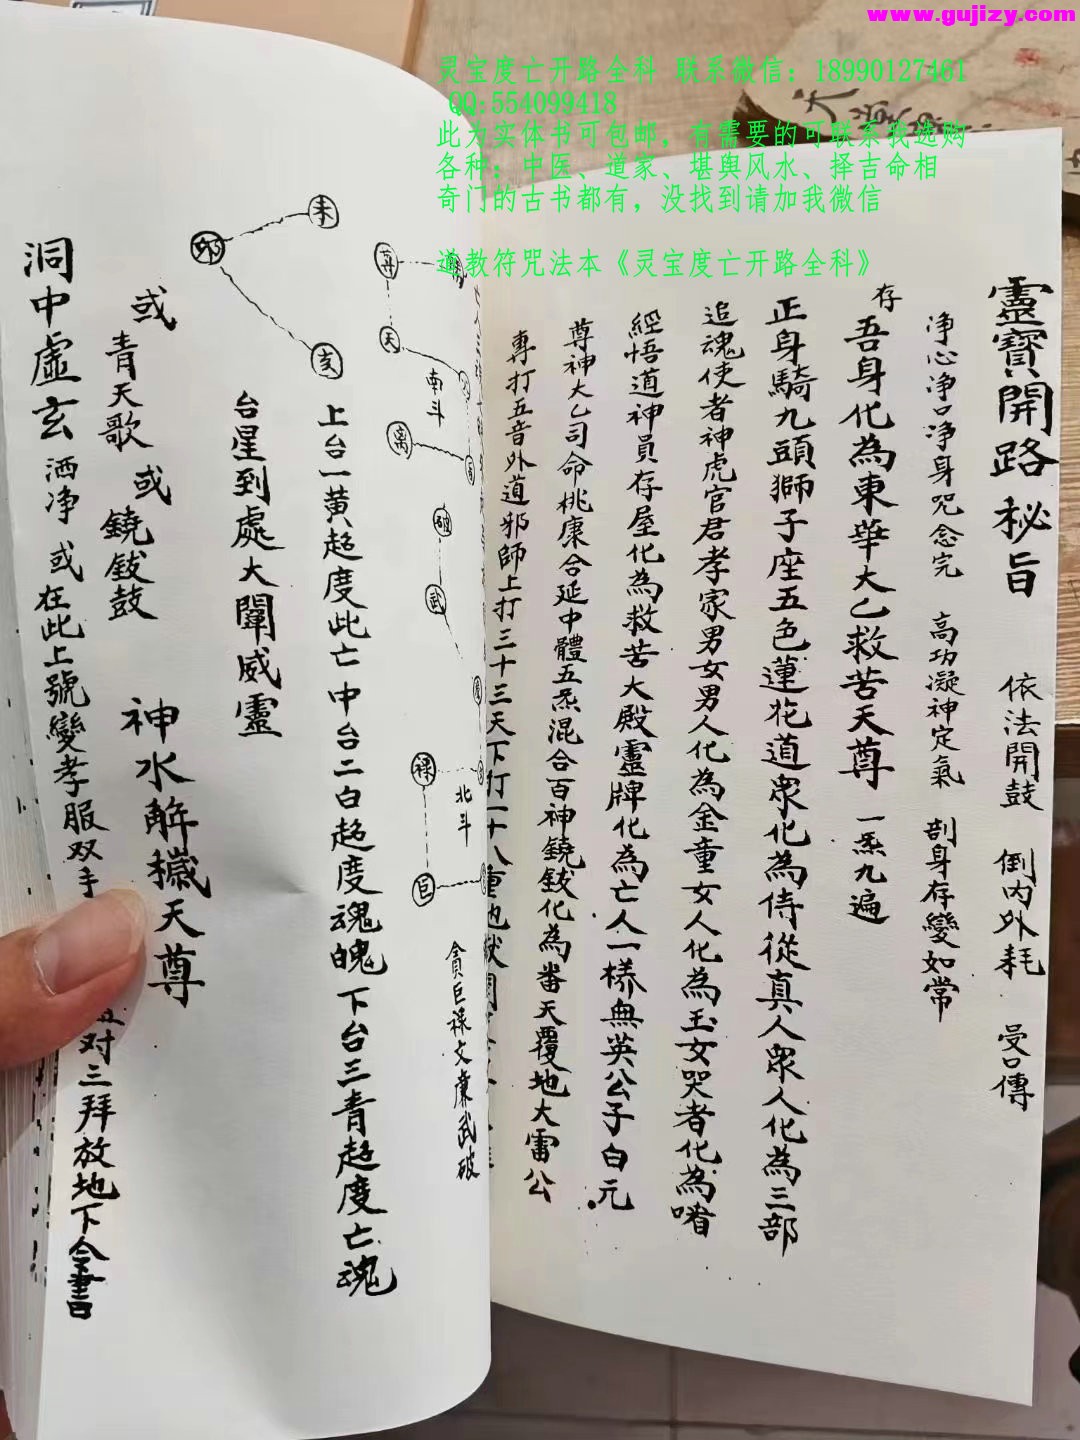 www.gujizy.com
灵宝度亡开路全科 联系微信：18990127461
QQ:554099418
此为实体书可包邮，有需要的可联系我选购
各种；中医、道家、堪舆风水、择吉命相
奇门的古书都有，没找到请加我微信
道教符咒法本《灵宝度亡开路全科》
靈寶開路秘旨 依法開鼓 倒内外耗 受口傳
净心净口净身咒念完 高功凝神定氣 剖身存變如常
存
吾身化為東華大乙救苦天尊 一炁九遍
正身騎九頭獅子座五色蓮花道眾化為侍從真人眾人化為三部
追魂使者神虎官君孝家男女男人化為金童女人化為玉女哭者化為唷
經悟道神員存屋化為救苦大殿靈牌化為亡人一樣無英公子白元
尊神大乙司命桃康合延中體五炁混合百神鐃鈸化為番天覆地大雷公
專打五音外道邪師上打三十三天下打一十八重地獄
尊
天
南斗
離
破
武
祿
北斗
巨
貪巨祿文廉武破
上台一黃超度此亡 中台二白超度魂魄 下台三青超度亡魂
台星到處大闡威靈
或
青天歌 或 鐃鈸鼓
神水解穢天尊
洞中虛玄 洒净 或在此上號變孝服双手
对三拜放地下令書